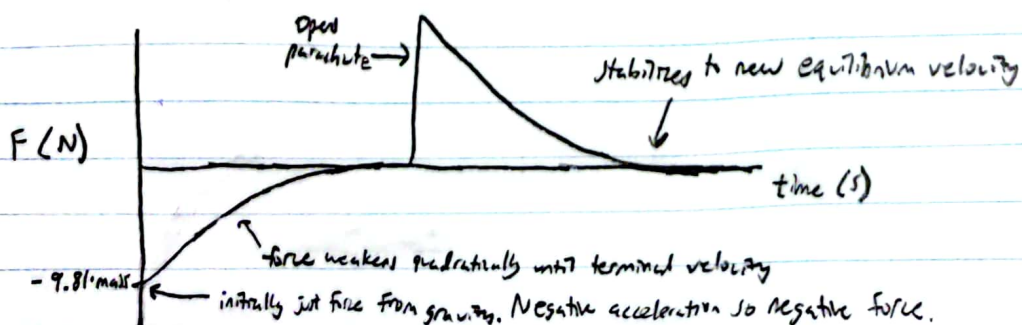 Open
parachute
stabilizes to new equilibrium velocity
F (N)
time (s)
force weakens quadratically until terminal velocity
-9.81·mass
initially just force from gravity. Negative acceleration so negative force.